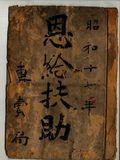 昭和十七年
恩給扶助
東雲局